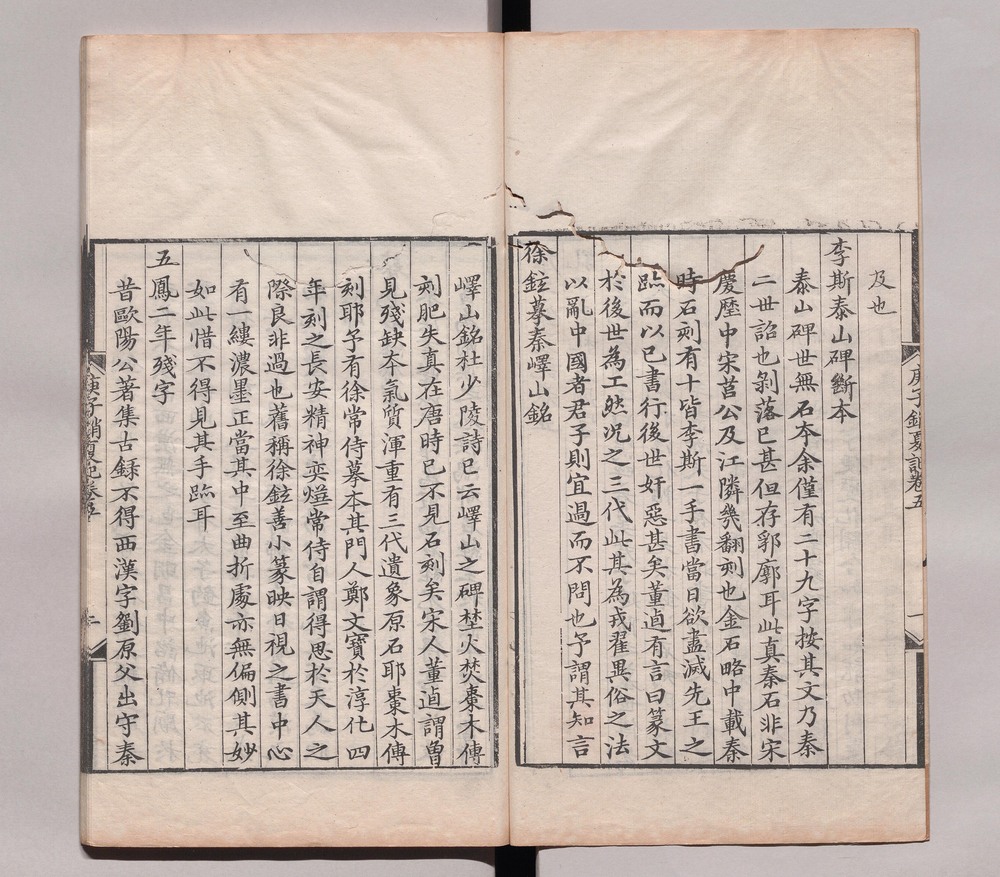 及也
李斯泰山碑斷本
泰山碑世無石本余僅有二十九字按其文乃秦
二世詔也剝落已甚但存郛廓耳此真秦石非宋
慶歷中宋莒公及江隣幾翻刻也金石略中載秦
時石刻有十皆李斯一手書當日欲盡滅先王之
跡而以已書行後世奸惡甚矣董逌有言曰篆文
於後世為工然况之三代此其為戎翟異俗之法
以亂中國者君子則宜過而不問也予謂其知言
徐鉉摹秦嶧山銘
嶧山銘杜少陵詩已云嶧山之碑埜火焚棗木傳
刻肥失真在唐時已不見石刻矣宋人董逌謂魯
見殘缺本氣質渾重有三代遺象原石耶棗木傳
刻耶予有徐常侍摹本其門人鄭文寶於淳化四
年刻之長安精神奕熷常侍自謂得思於天人之
際良非過也舊稱徐鉉善小篆映日視之書中心
有一縷濃墨正當其中至曲折處亦無偏側其妙
如此惜不得見其手跡耳
五鳳二年殘字
昔歐陽公著集古錄不得西漢字劉原父出守秦
庚子銷夏記卷五
一
庚子銷夏記卷五
二